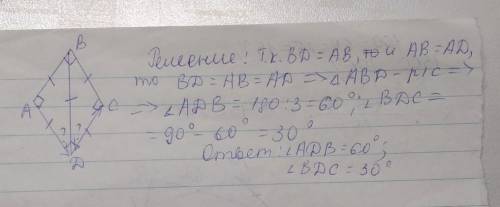 B
A
C
D
? ?
Решение: Т.к. BD = AB, то и AB = AD,
то BD = AB = AD => △ABD - р/с =>
-> ∠ADB = 180:3 = 60°; ∠BDC =
= 90° - 60° = 30°
Ответ: ∠ADB = 60°;
∠BDC = 30°